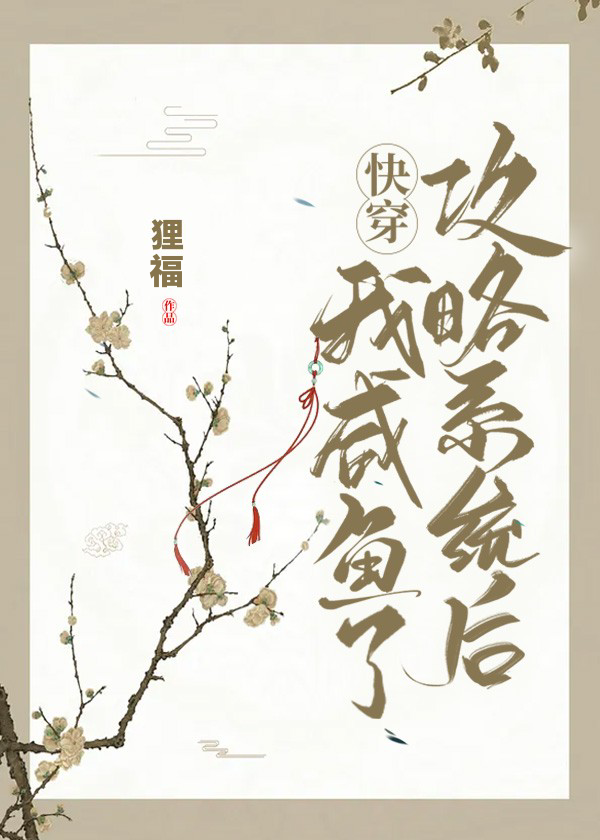 快穿
攻略系统后
我咸鱼了
狸福
作品